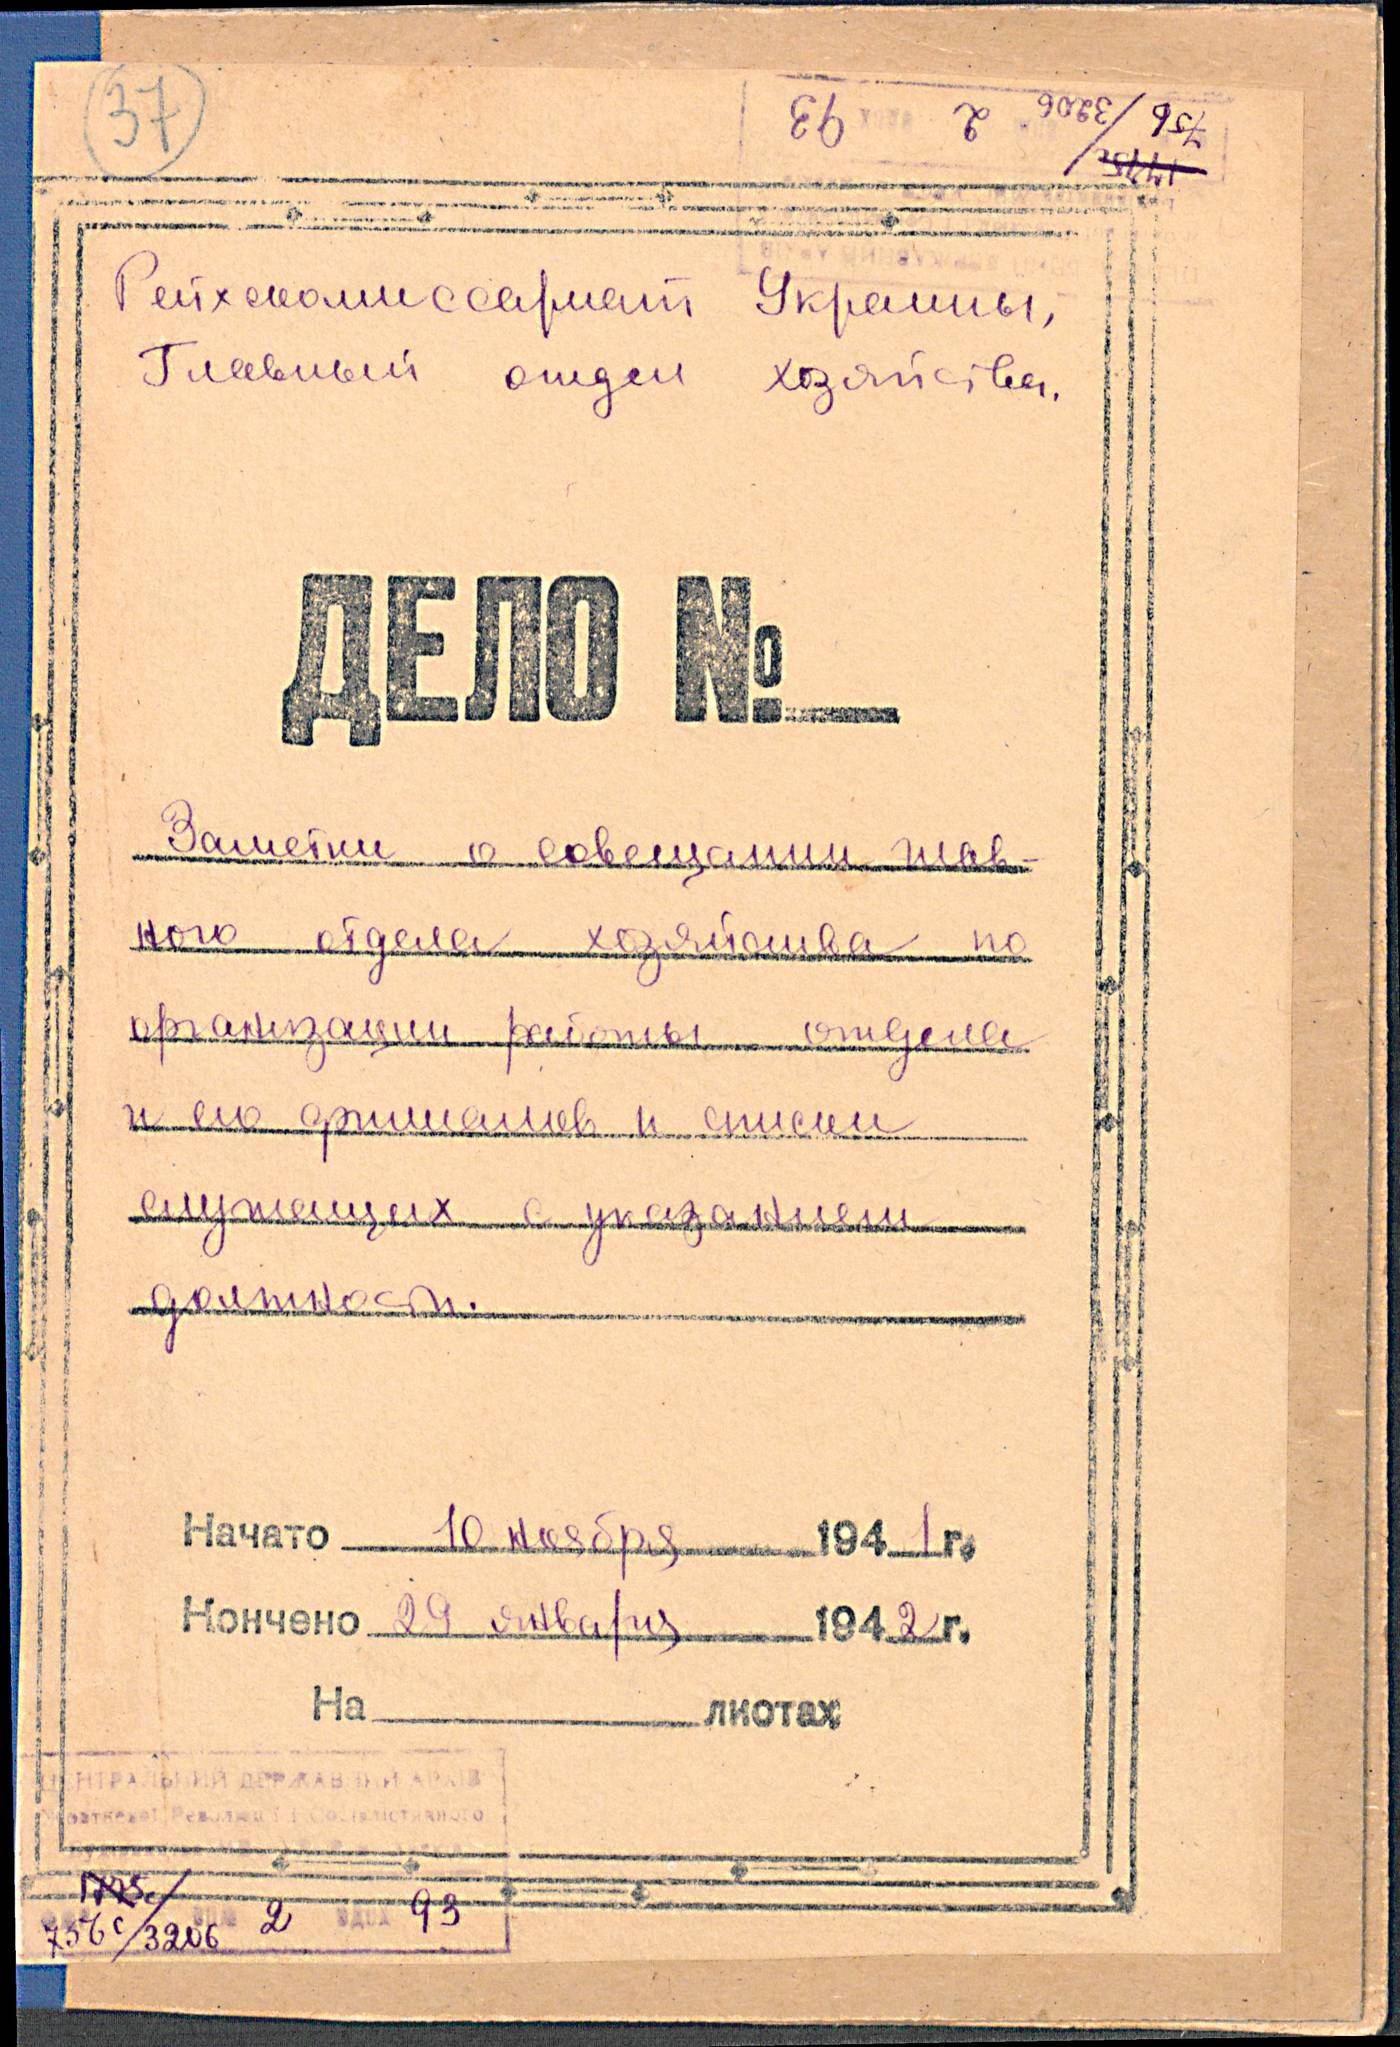 37
93 2 3206/756
Рейхскомиссариат Украины,
Главный отдел хозяйства.
ДЕЛО №
Заметки о совещании глав-
ного отдела хозяйства по
организации работы отдела
и его филиалов и списки
служащих с указанием
должности.
Начато 10 ноября 1941 г.
Кончено 29 января 1942 г.
На листах
ЦЕНТРАЛЬНИЙ ДЕРЖАВНИЙ АРХІВ
Жовтневої Революції і Соціалістичного
756с/3206 2 93